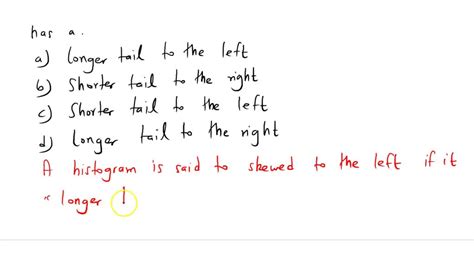 has a.
a) longer tail to the left
b) Shorter tail to the right
c) Shorter tail to the left
d) longer tail to the right
A histogram is said to skewed to the left if it
* longer l